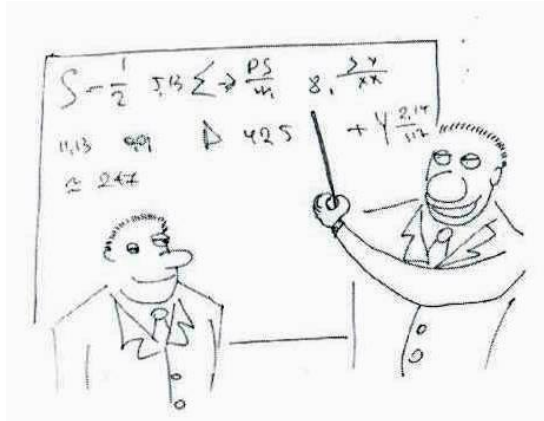 S - 1/2 5,13 Σ → PS/m 8, 3y/xx
11,13 99 D 425 + Y 2,14/317
≃ 247